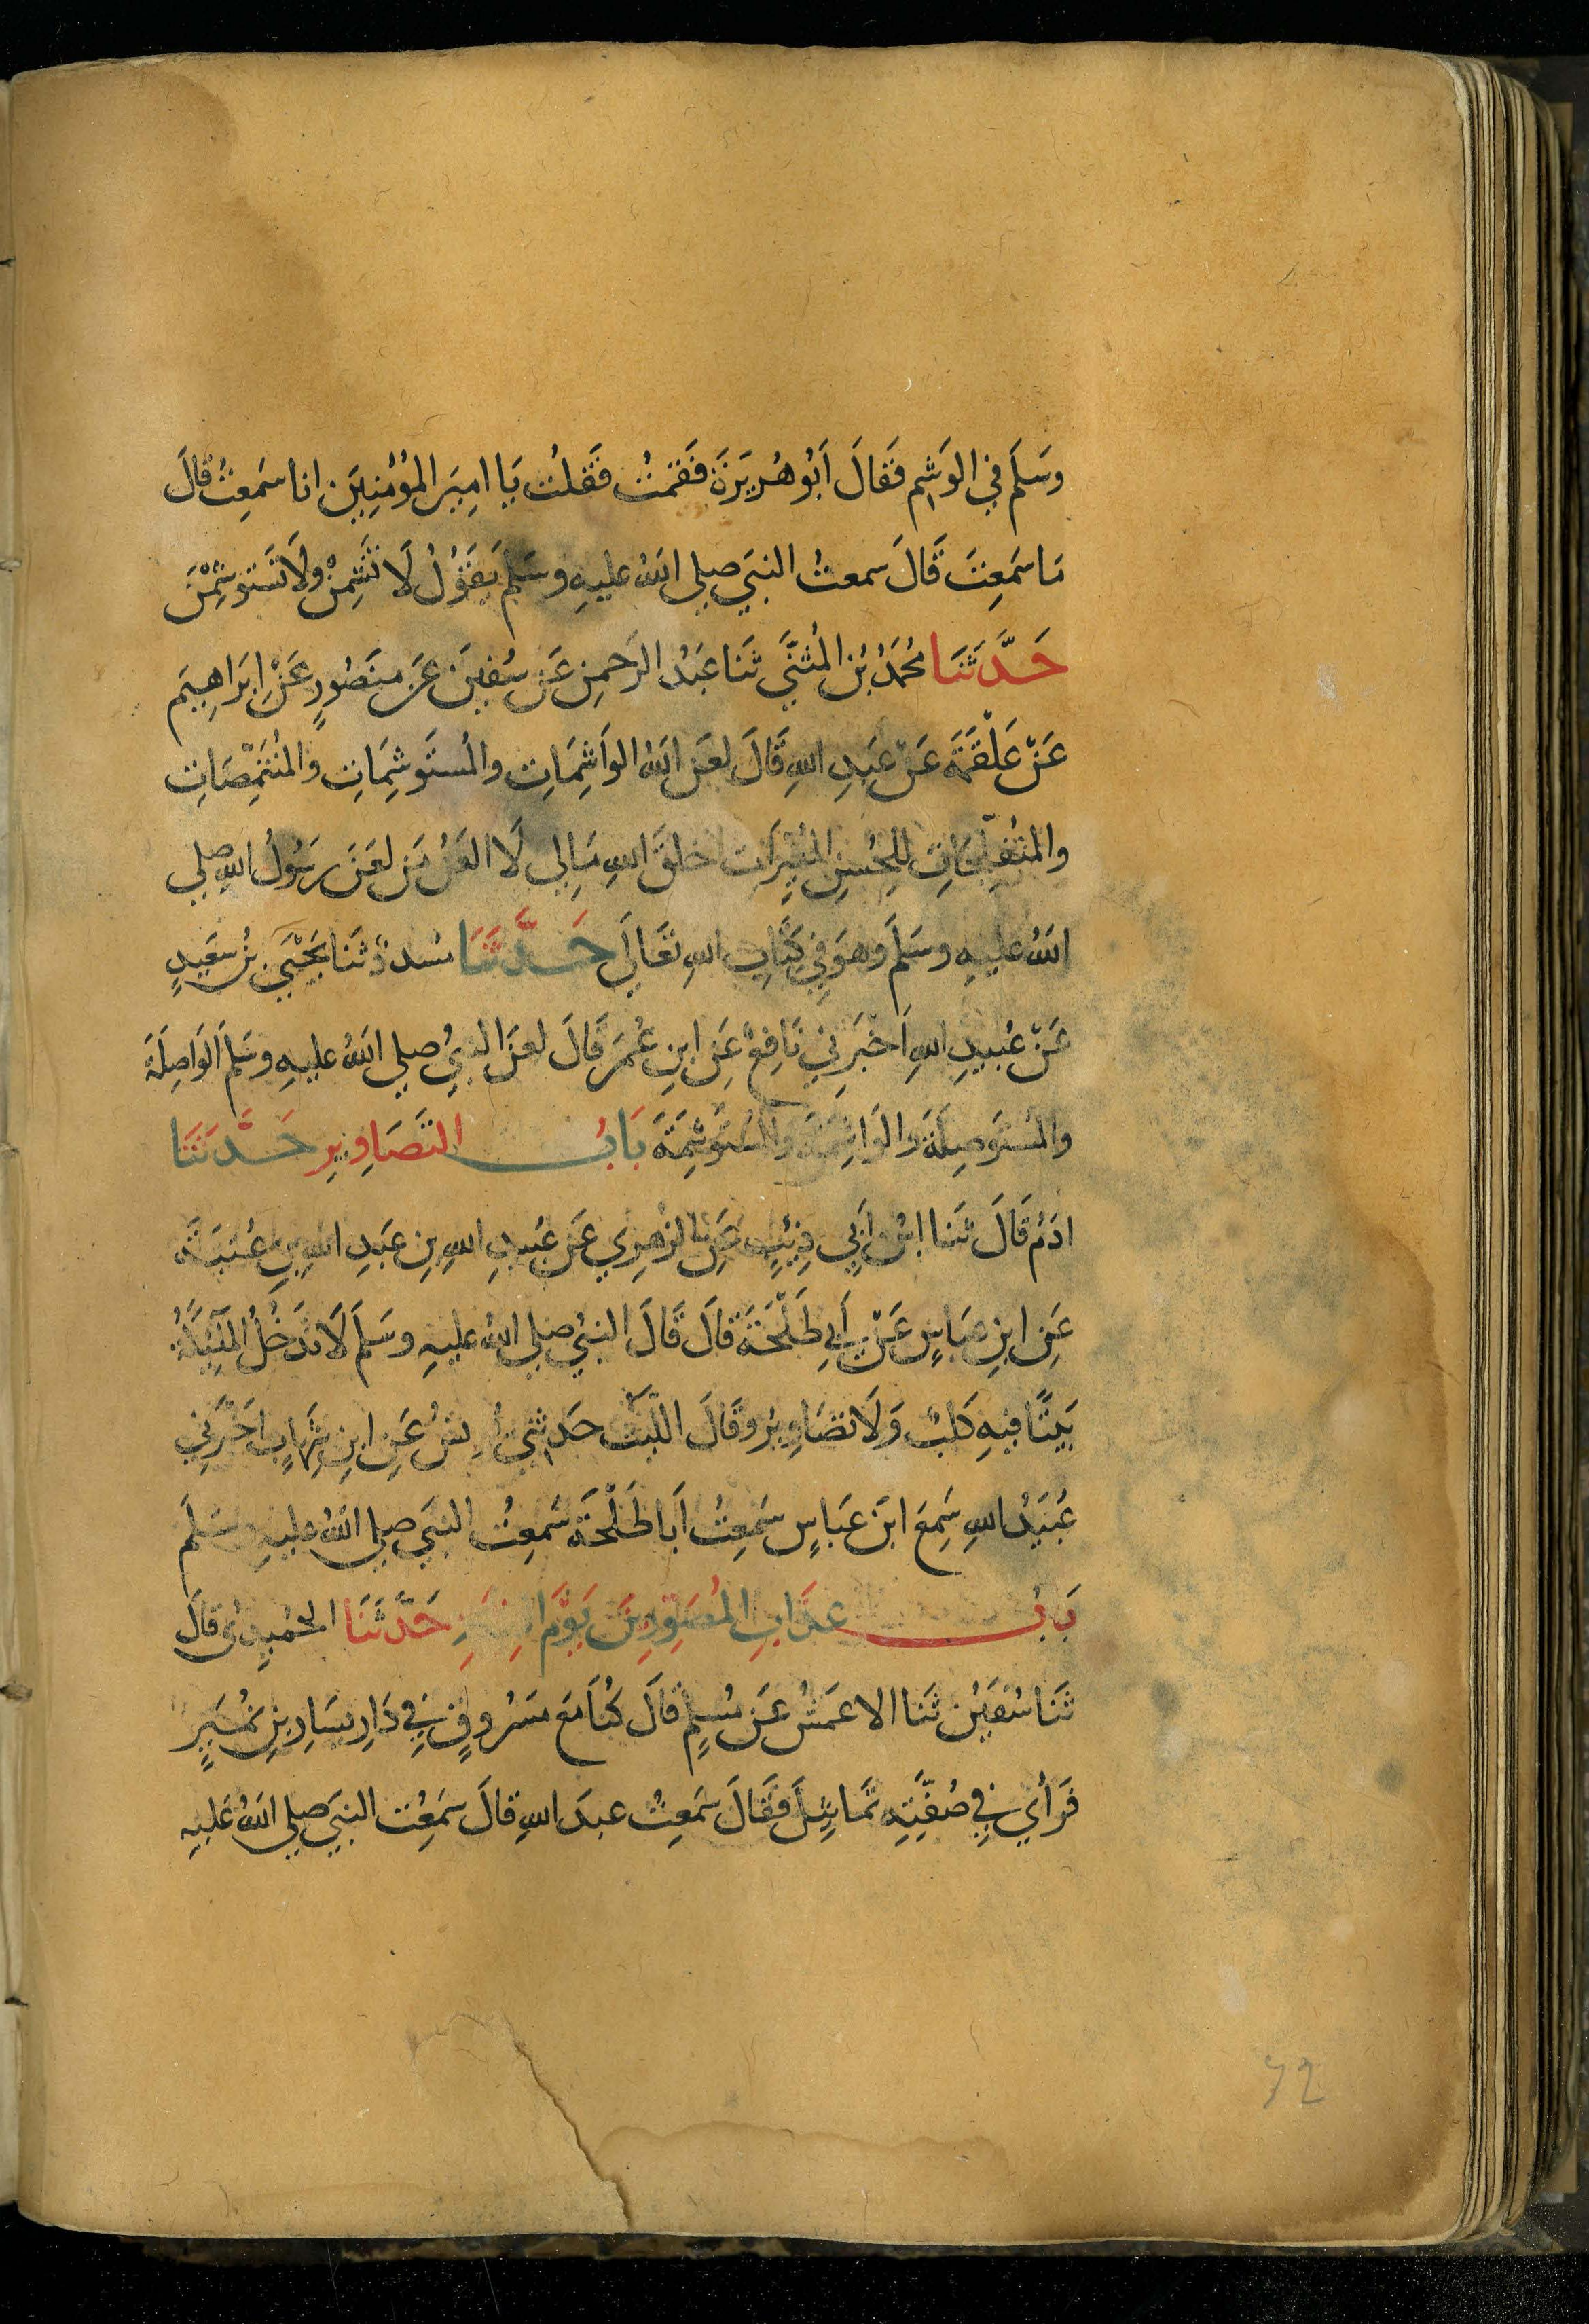 وَسَلَم فِي الوَشِم فَقَالَ اَبُو هُرَيَرَةَ فَقمتُ فَقلتُ يَا امِيَر المُؤُمِنِيَن انا سَمعِتُ قَالَ
مَا سَمَعِتَ قَالَ سمعتُ النبَي صلى اللهُ عليهِ وسَلم يَقَوُلُ لَا تَشِمْنَ ولَا تَستوشِمْنَ
حَدَّثَنَا مُحَمَدُ بُن المُثنَّي ثَنَا عَبَدُ الرَحمِن عَن سُفيَن عَن منَصُورٍ عَنْ اِبَراهِيَم
عَنْ عَلْقَمَةَ عَنْ عَبِدِ اللهِ قَالَ لعَنَ اللهُ الوَاشِمَاتِ والمُستَوشِمَاتِ والمُتَنَمِّصَاتِ
والمُتَفلِّجَاتِ لِلحُسنِ المُغيِّرَاتِ خلقَ اللهِ مَا لي لَا العَنُ مَن لعَنَ رَسُولُ اللهِ صلي
اللهُ عليهِ وسَلَم وهوَ فِي كِتَابِ اللهِ تعَالَي حَدَّثَنَا مُسددٌ ثَنا يَحْيَي بنُ سعَيدٍ
عَنْ عُبَيدِ اللهِ اَخْبَرَنِي نَافِعٌ عَنِ ابنِ عُمَرَ قَالَ لعَنَ النبيُ صلي اللهُ عليهِ وسَلم الوَاصِلَةَ
والمُستَوصِلَةَ والوَاشِمَةَ والمُستَوشِمَةَ بَابُ التَصَاوِيرِ حَدَّثَنَا
ادَمُ قَالَ ثَنَا ابنُ اَبِي ذِئبٍ عَنِ الزُهرِي عَنْ عُبَيدِ اللهِ بِن عبَدِ اللهِ بِن عُتبَةَ
عَنِ ابنِ عبَاسٍ عَنْ اَبِي طَلْحَةَ قَالَ قَالَ النبيُ صلي اللهُ عليهِ وسَلَم لَا تَدَخُلُ المَلَئِكَةُ
بَيتًا فيهِ كَلبٌ وَلَا تصَاوِيرُ وقَالَ الليَث حدَثنِي يُونسُ عَنِ ابنِ شِهَابٍ اَخْبَرَنِي
عُبَيدُ اللهِ سَمِعَ ابنَ عَبَاسٍ سَمِعتُ اَبَا طَلْحَةَ سَمِعتُ النبَي صلي اللهُ عليهِ وسَلَم
بَابُ عذَابِ المُصَوِرِينَ يَوَمَ حَدَّثَنَا الحُمَيدِيُ قَالَ
ثَنَا سُفيَن ثَنَا الاعمَشُ عَنْ مُسلِمٍ قَالَ كُنَا مَعَ مَسُروقٍ فِي دَارِ يسَارِ بِن نُمَيرٍ
فَرَأي فِي صُفَّتِهِ تمَاثِيلَ فَقَالَ سَمعِتُ عبدَ اللهِ قَالَ سَمعِت النبَي صلي اللهُ عَليهِ
72